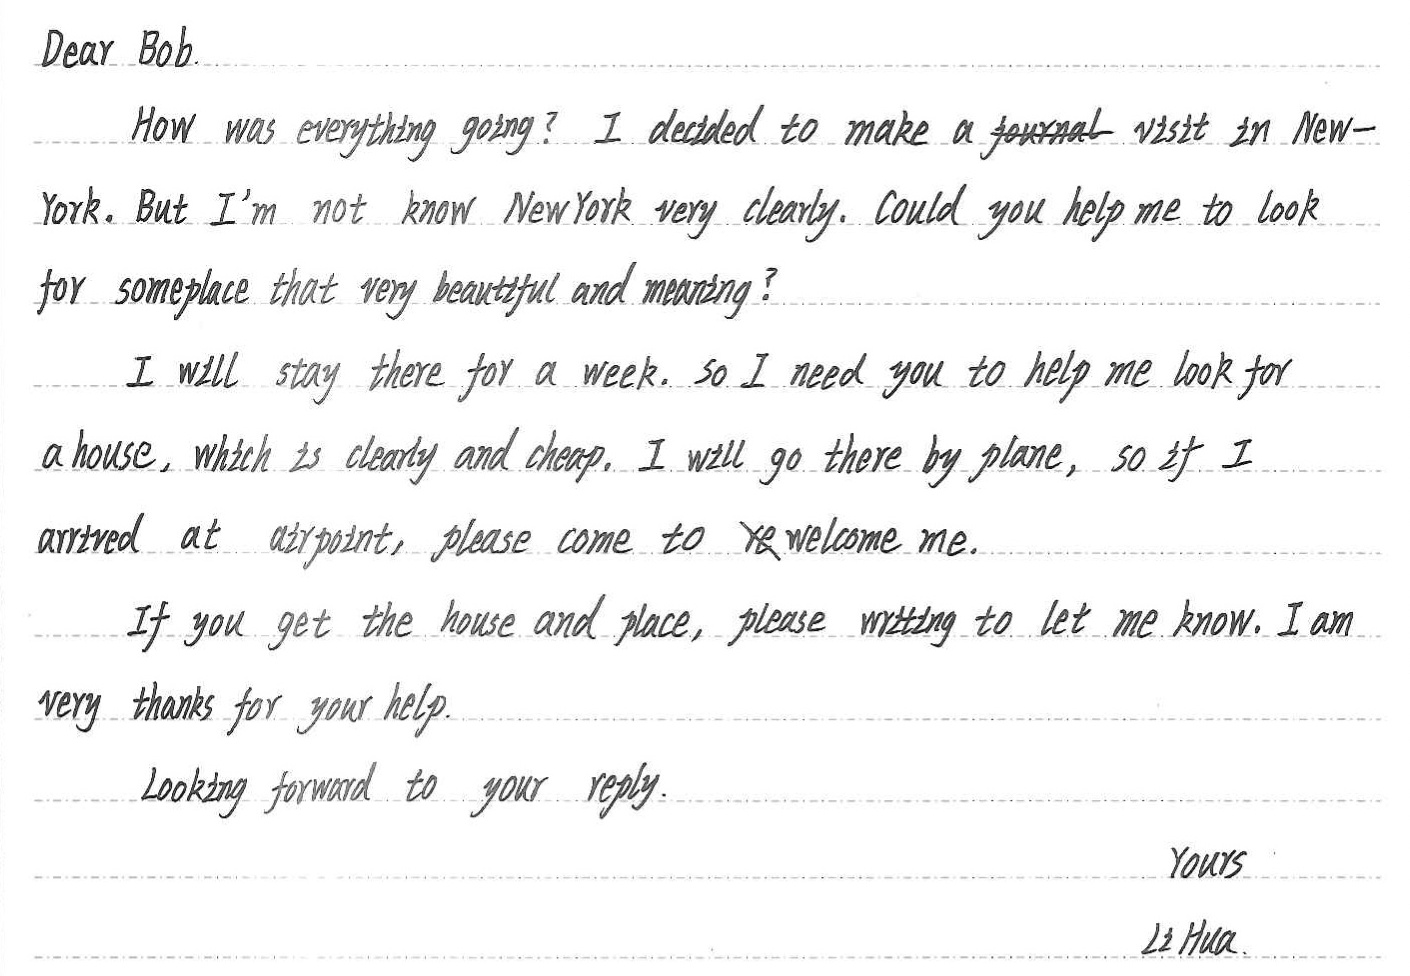 Dear Bob.
How was everything going? I decided to make a journal visit in New-
York. But I'm not know New York very clearly. Could you help me to look
for someplace that very beautiful and meaning?
I will stay there for a week. So I need you to help me look for
a house, which is clearly and cheap. I will go there by plane, so if I
arrived at airpoint, please come to re welcome me.
If you get the house and place, please writting to let me know. I am
very thanks for your help.
Looking forward to your reply.
Yours
Li Hua.